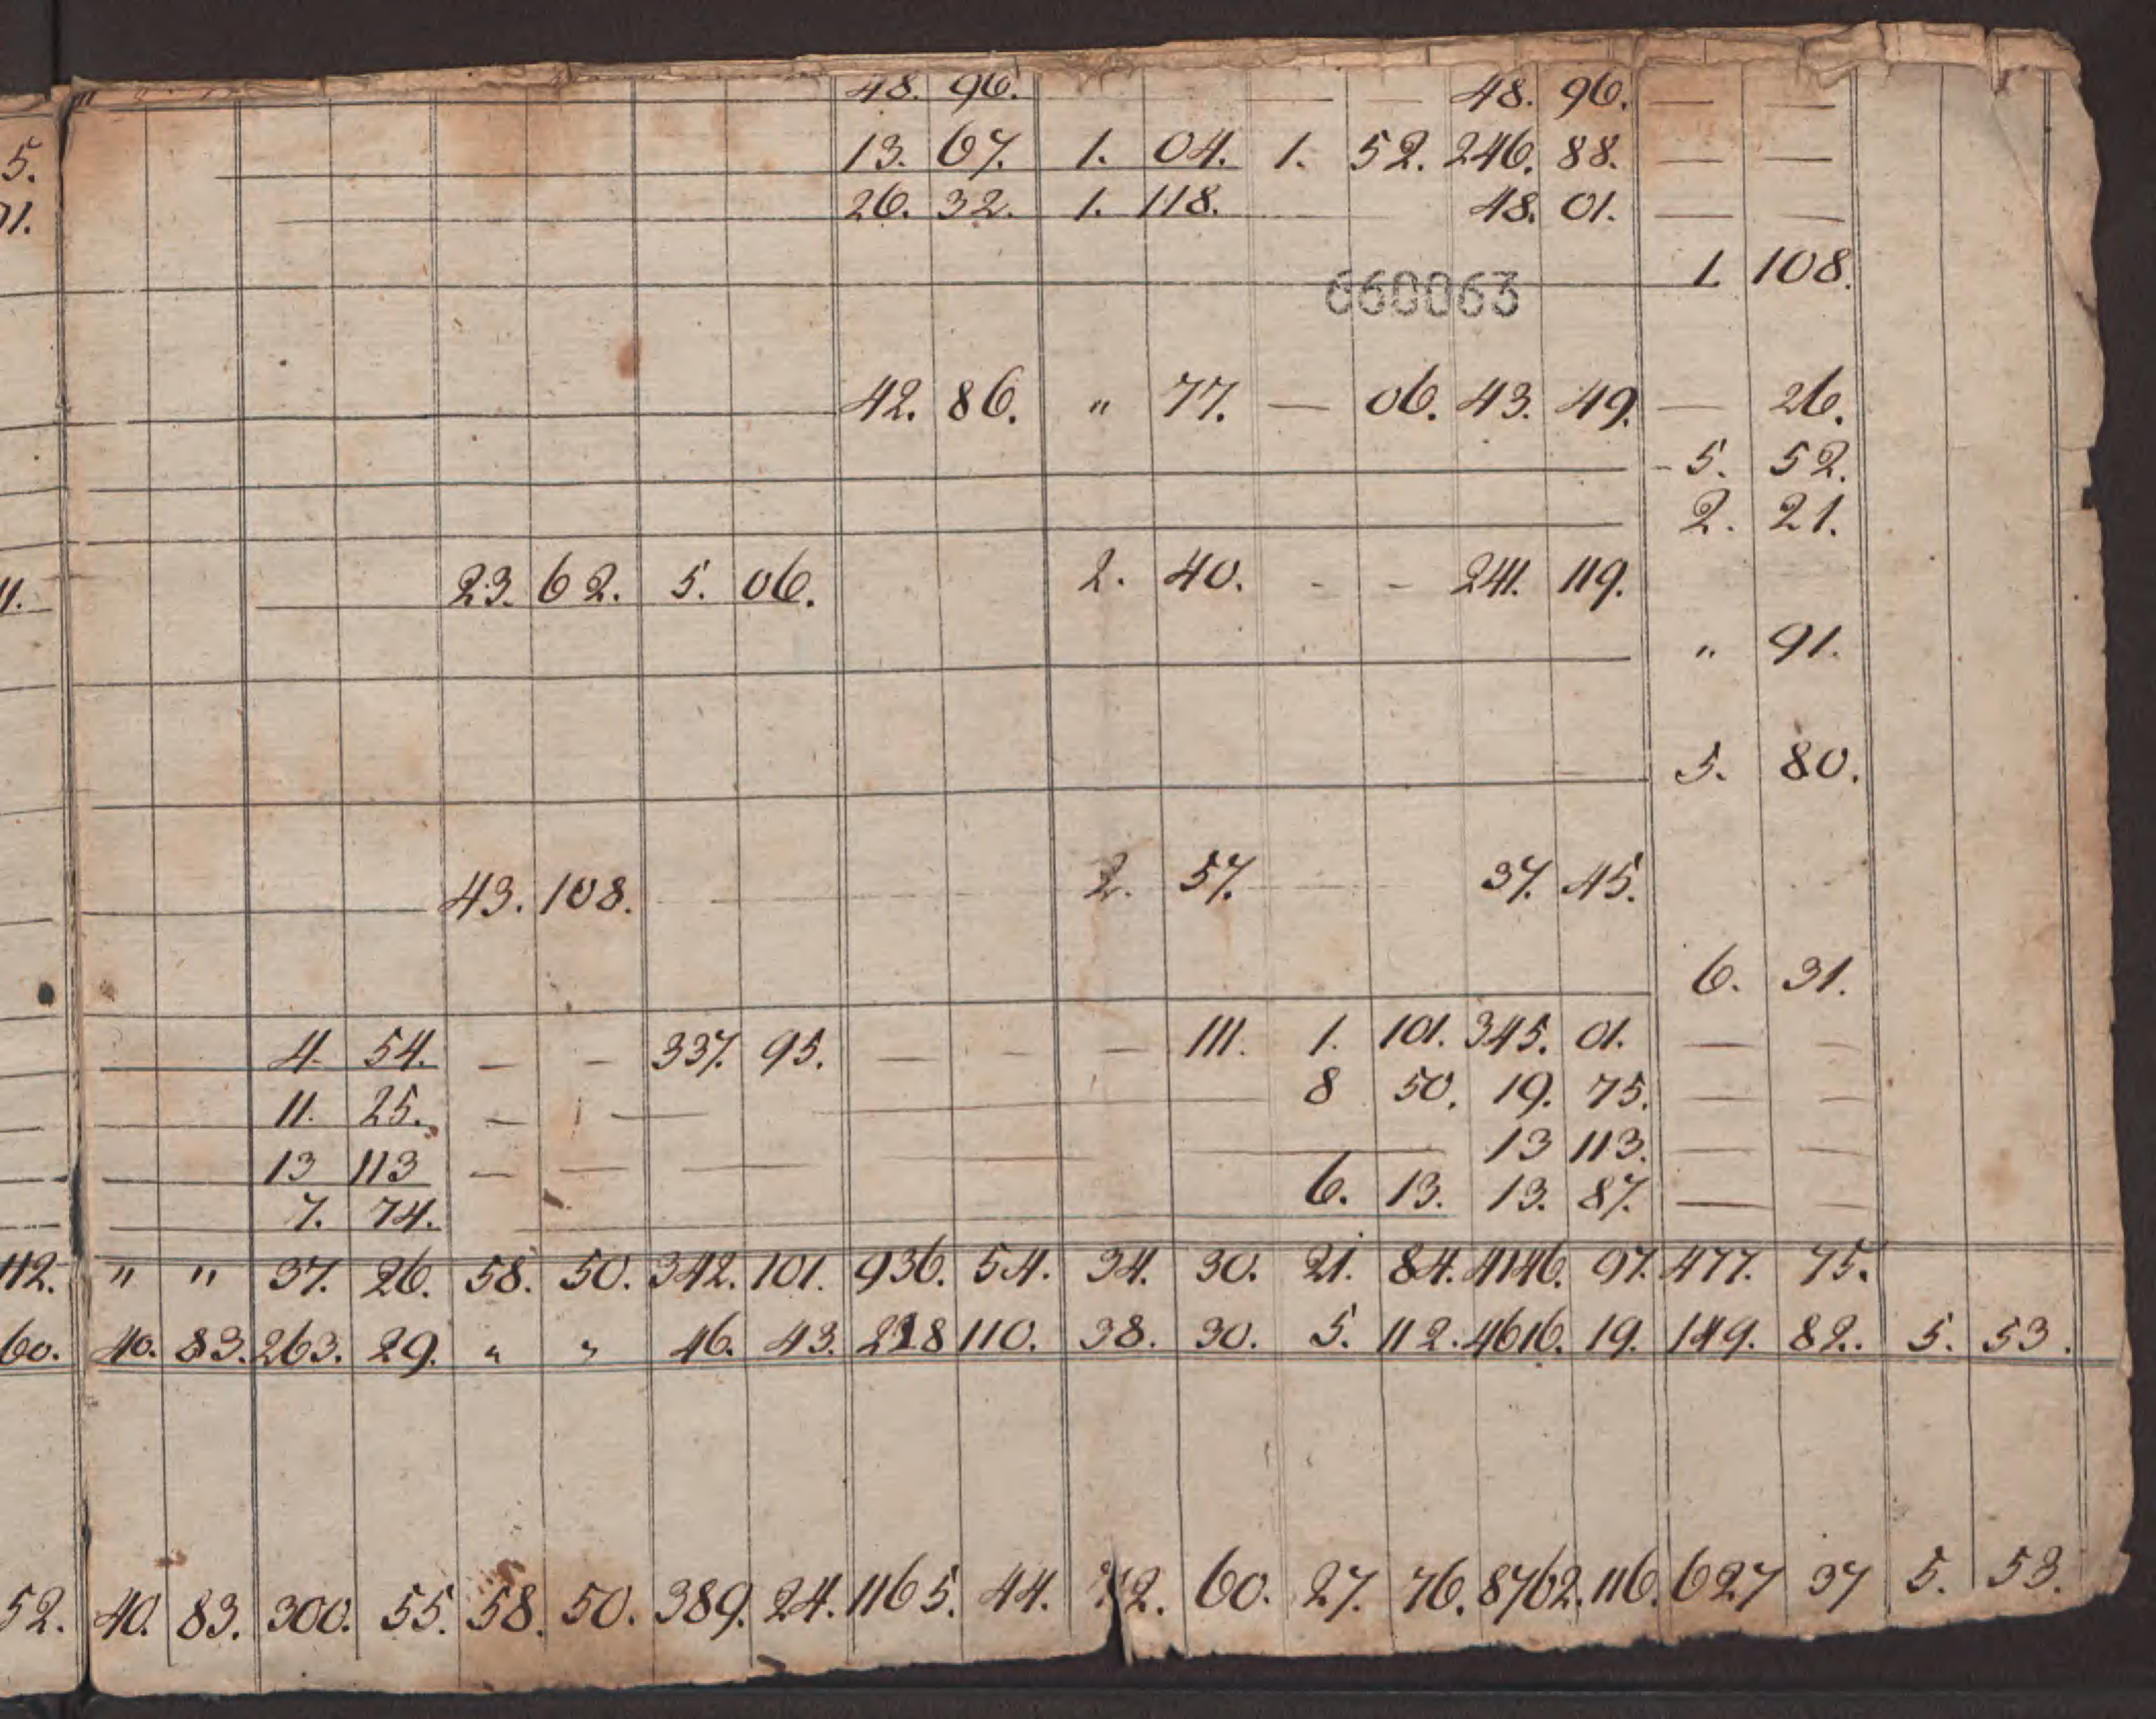 48. 96. — — 48. 96. — —
5. 13. 67. 1. 04. 1. 52. 246. 88. — —
71. 26. 32. 1. 118. 48. 01. — —
1. 108.
660063
42. 86. " 77. — 06. 43. 49. — 26.
- 5. 52.
2. 21.
11. 23. 62. 5. 06. 2. 40. - - 241. 119.
" 91.
5. 80.
43. 108. 2. 57. 37. 45.
6. 31.
4. 54. — — 337. 95. — — — 111. 1. 101. 345. 01. — —
11. 25. — — 8 50. 19. 75. — —
13 113 — — — 13 113. — —
7. 74. 6. 13. 13. 87. — —
112. " " 37. 26. 58. 50. 342. 101. 936. 54. 34. 30. 21. 84. 4146. 97. 477. 75.
60. 40. 83. 263. 29. " " 46. 43. 228 110. 38. 30. 5. 112. 4616. 19. 149. 82. 5. 53.
52. 40. 83. 300. 55. 58. 50. 389. 24. 1165. 44. 72. 60. 27. 76. 8762. 116. 627 37 5. 53.